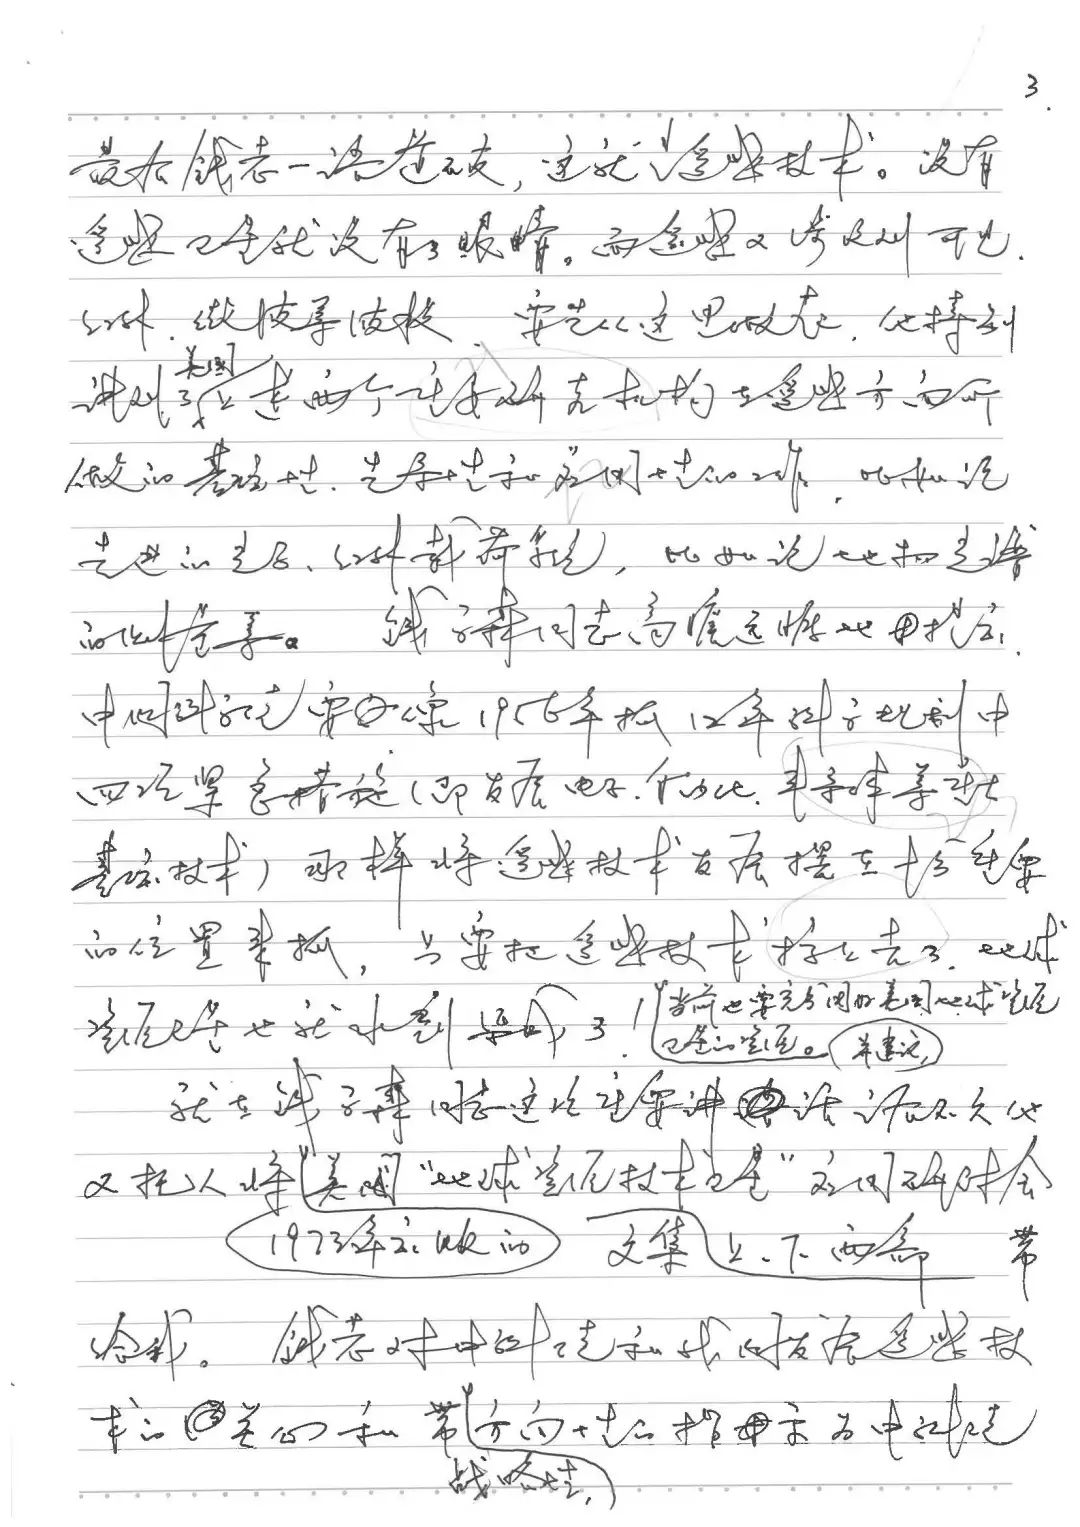 3.
最后钱老一语道破，这就是遥感技术。没有
遥感卫星就没有了眼睛。而遥感又涉及到可见、
红外、微波等波段 要先从这里做起，他特别
讲到了美国上述两个重要研究机构在遥感方面所
做的基础性、先导性和应用性的工作，比如说
先进的光子、红外载荷系统，比如说地物光谱
的仪器等。 钱学森同志高瞻远瞩地指出，
中国科学院要像1956年抓12年科学规划中
四项紧急措施（即发展电子、自动化、半导体等
基础技术）那样将遥感技术发展摆在十分重要
的位置来抓，只要把遥感技术搞上去了，地球
资源卫星也就水到渠成了！当前也要充分利用好美国地球资源
卫星的资源。并建议，
就在钱学森同志这次重要讲话后不久他
又托人将美国“地球资源技术卫星”应用研讨会
1973年出版的 文集上、下两部 带
给我。 钱老对中科院和我国发展遥感技
术的关心和带方向性的指示为中科院
战略性，